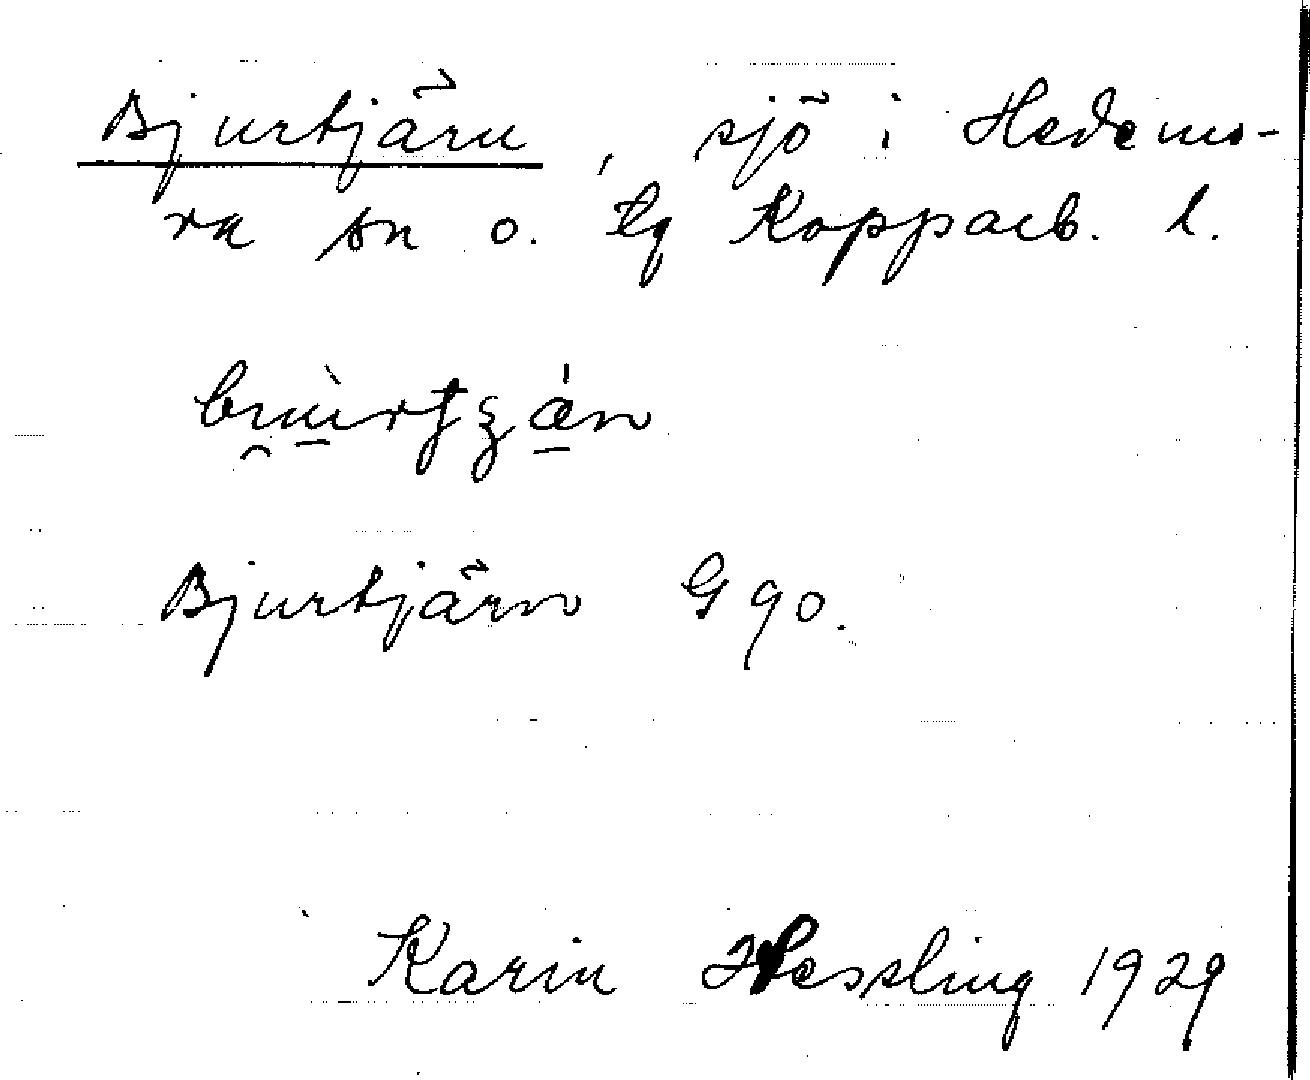 Bjurtjärn, sjö i Hedemo-
ra sn o. tg Kopparb. l.
Bjurtjärn G 90.
Karin Hessling 1929